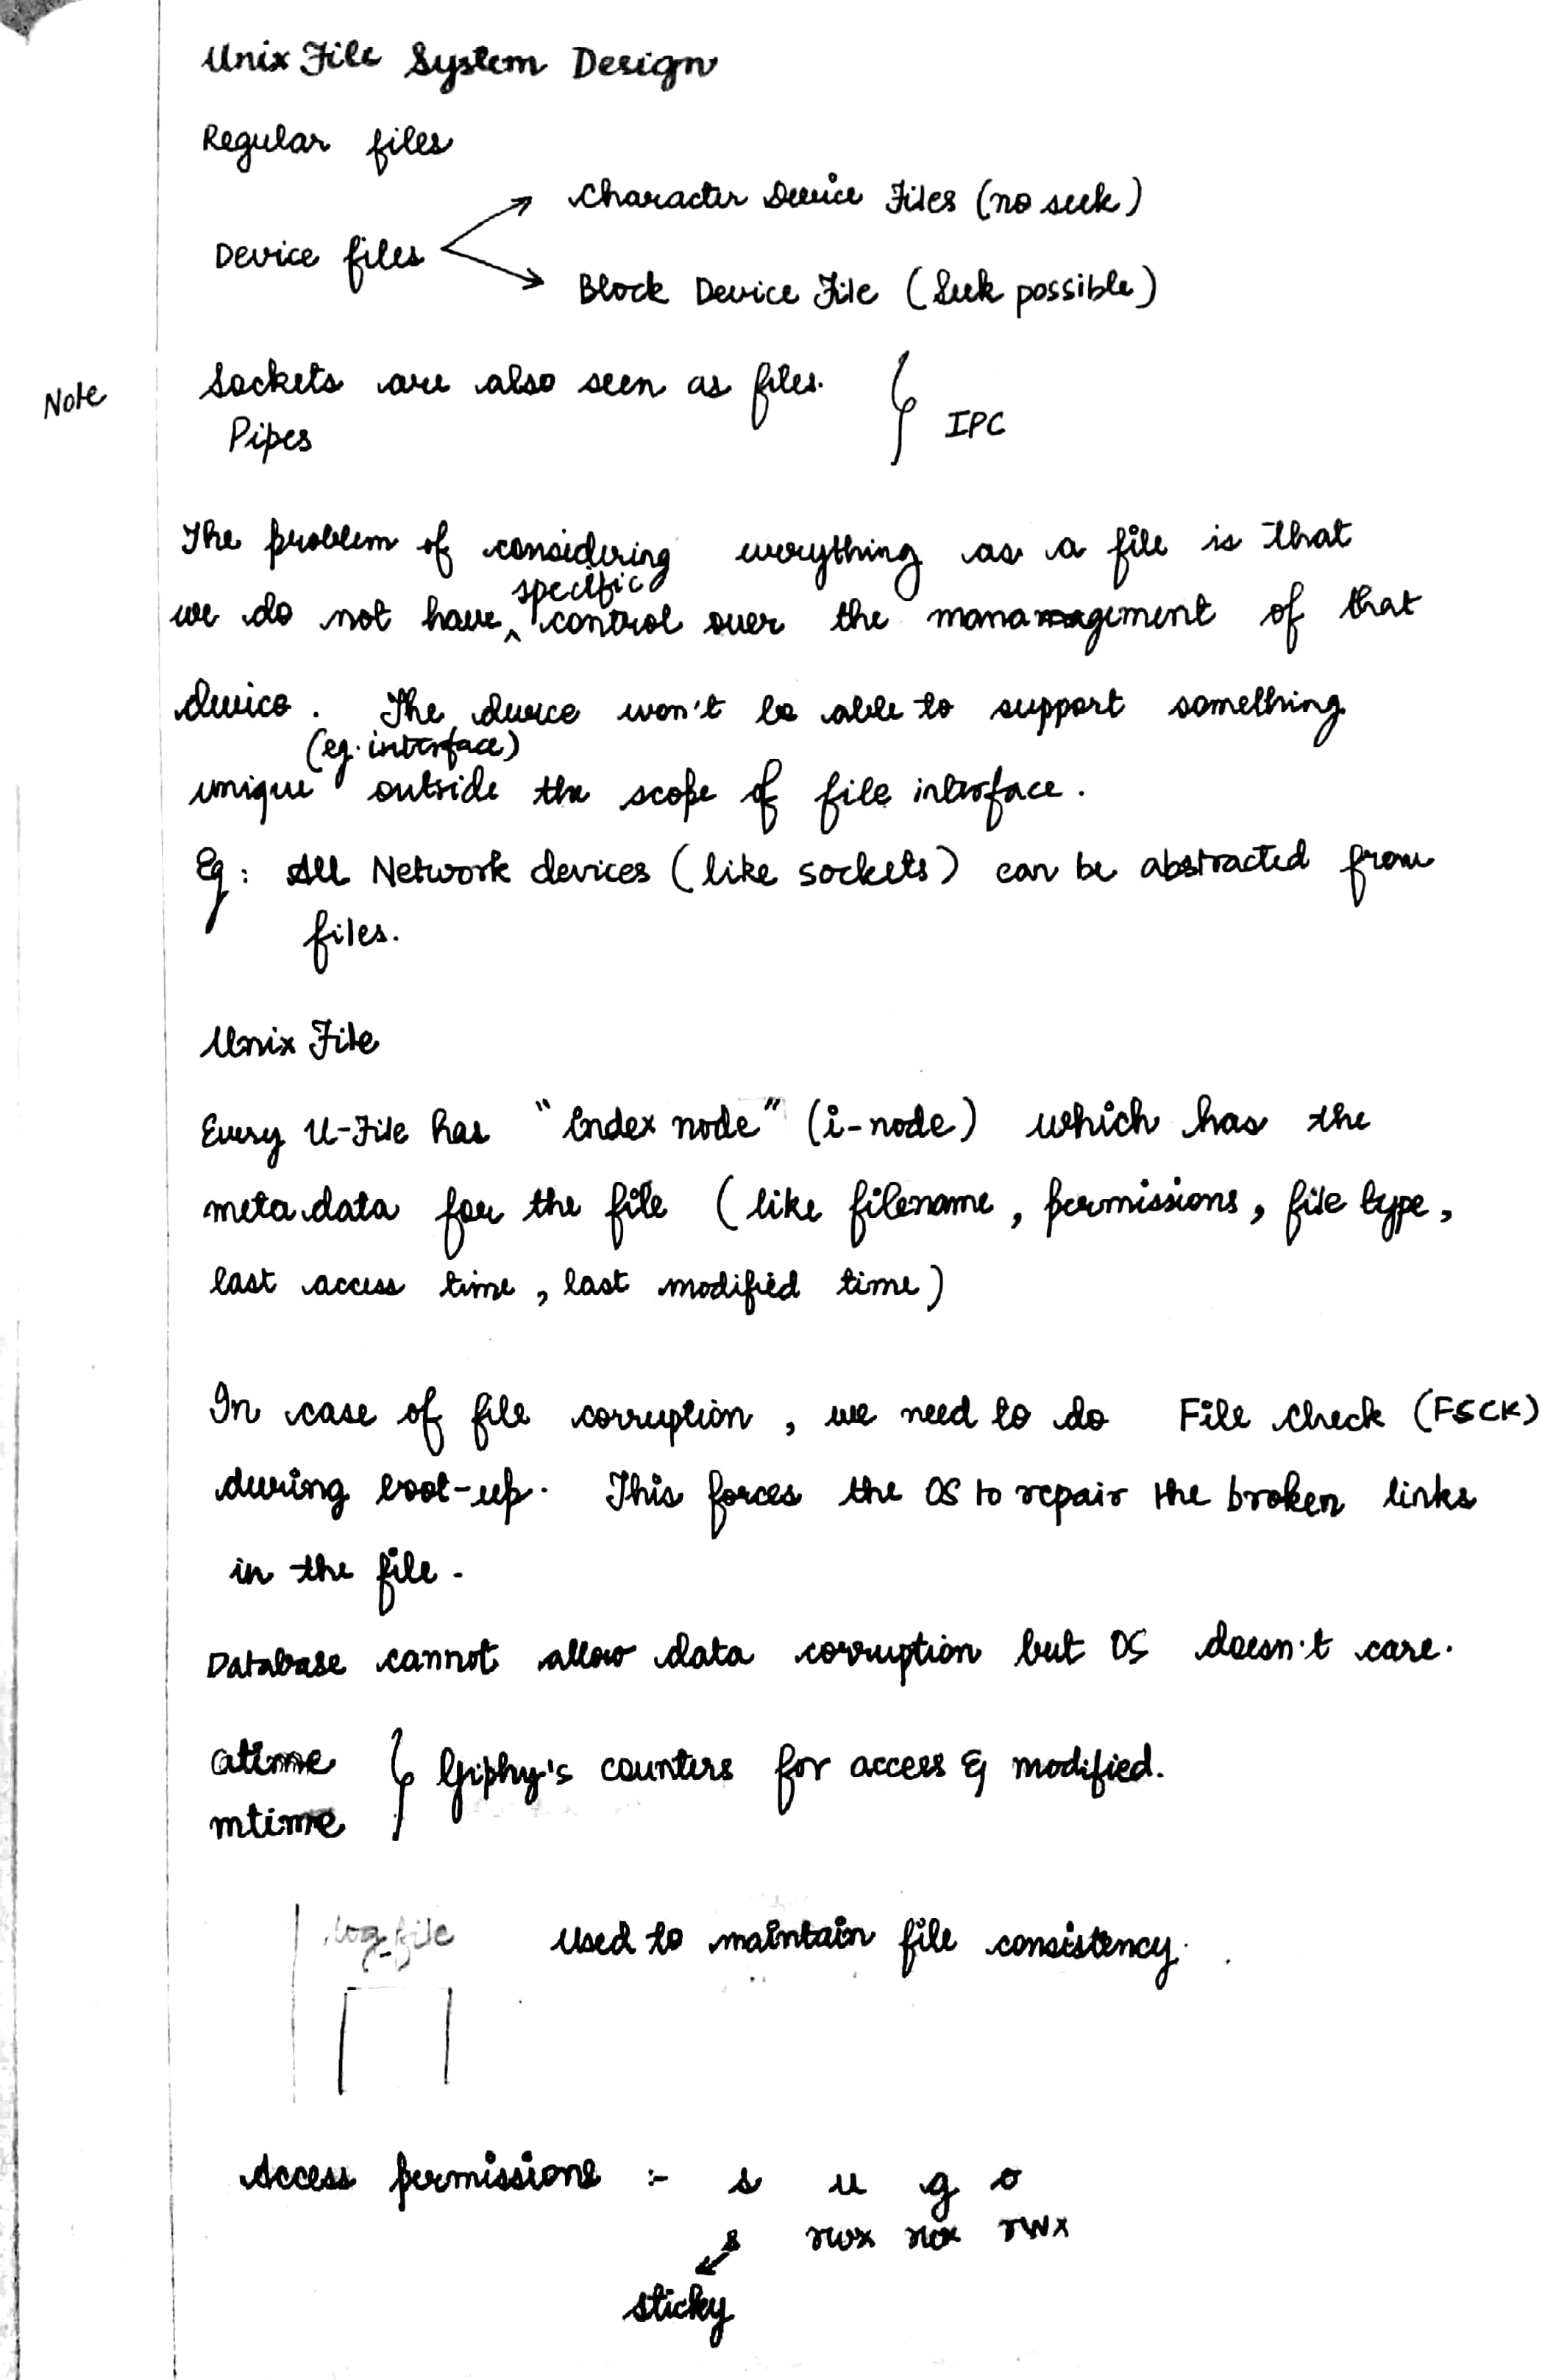 Unix File System Design
Regular files
Character Device Files (no seek)
Device files
Block Device File (Seek possible)
Note
Sockets are also seen as files.
Pipes
IPC
The problem of considering everything as a file is that
specific
we do not have ^ control over the management of that
device. The device won't be able to support something
(eg. interface)
unique outside the scope of file interface.
Eg: All Network devices (like sockets) can be abstracted from
files.
Unix File
Every U-File has "Index node" (i-node) which has the
meta data for the file (like filename, permissions, file type,
last access time, last modified time)
In case of file corruption, we need to do File check (FSCK)
during boot-up. This forces the OS to repair the broken links
in the file.
Database cannot allow data corruption but OS doesn't care.
atime
mtime
Giphy's counters for access & modified.
log-file used to maintain file consistency.
Access permissions :- s u g o
s rwx rwx rwx
sticky